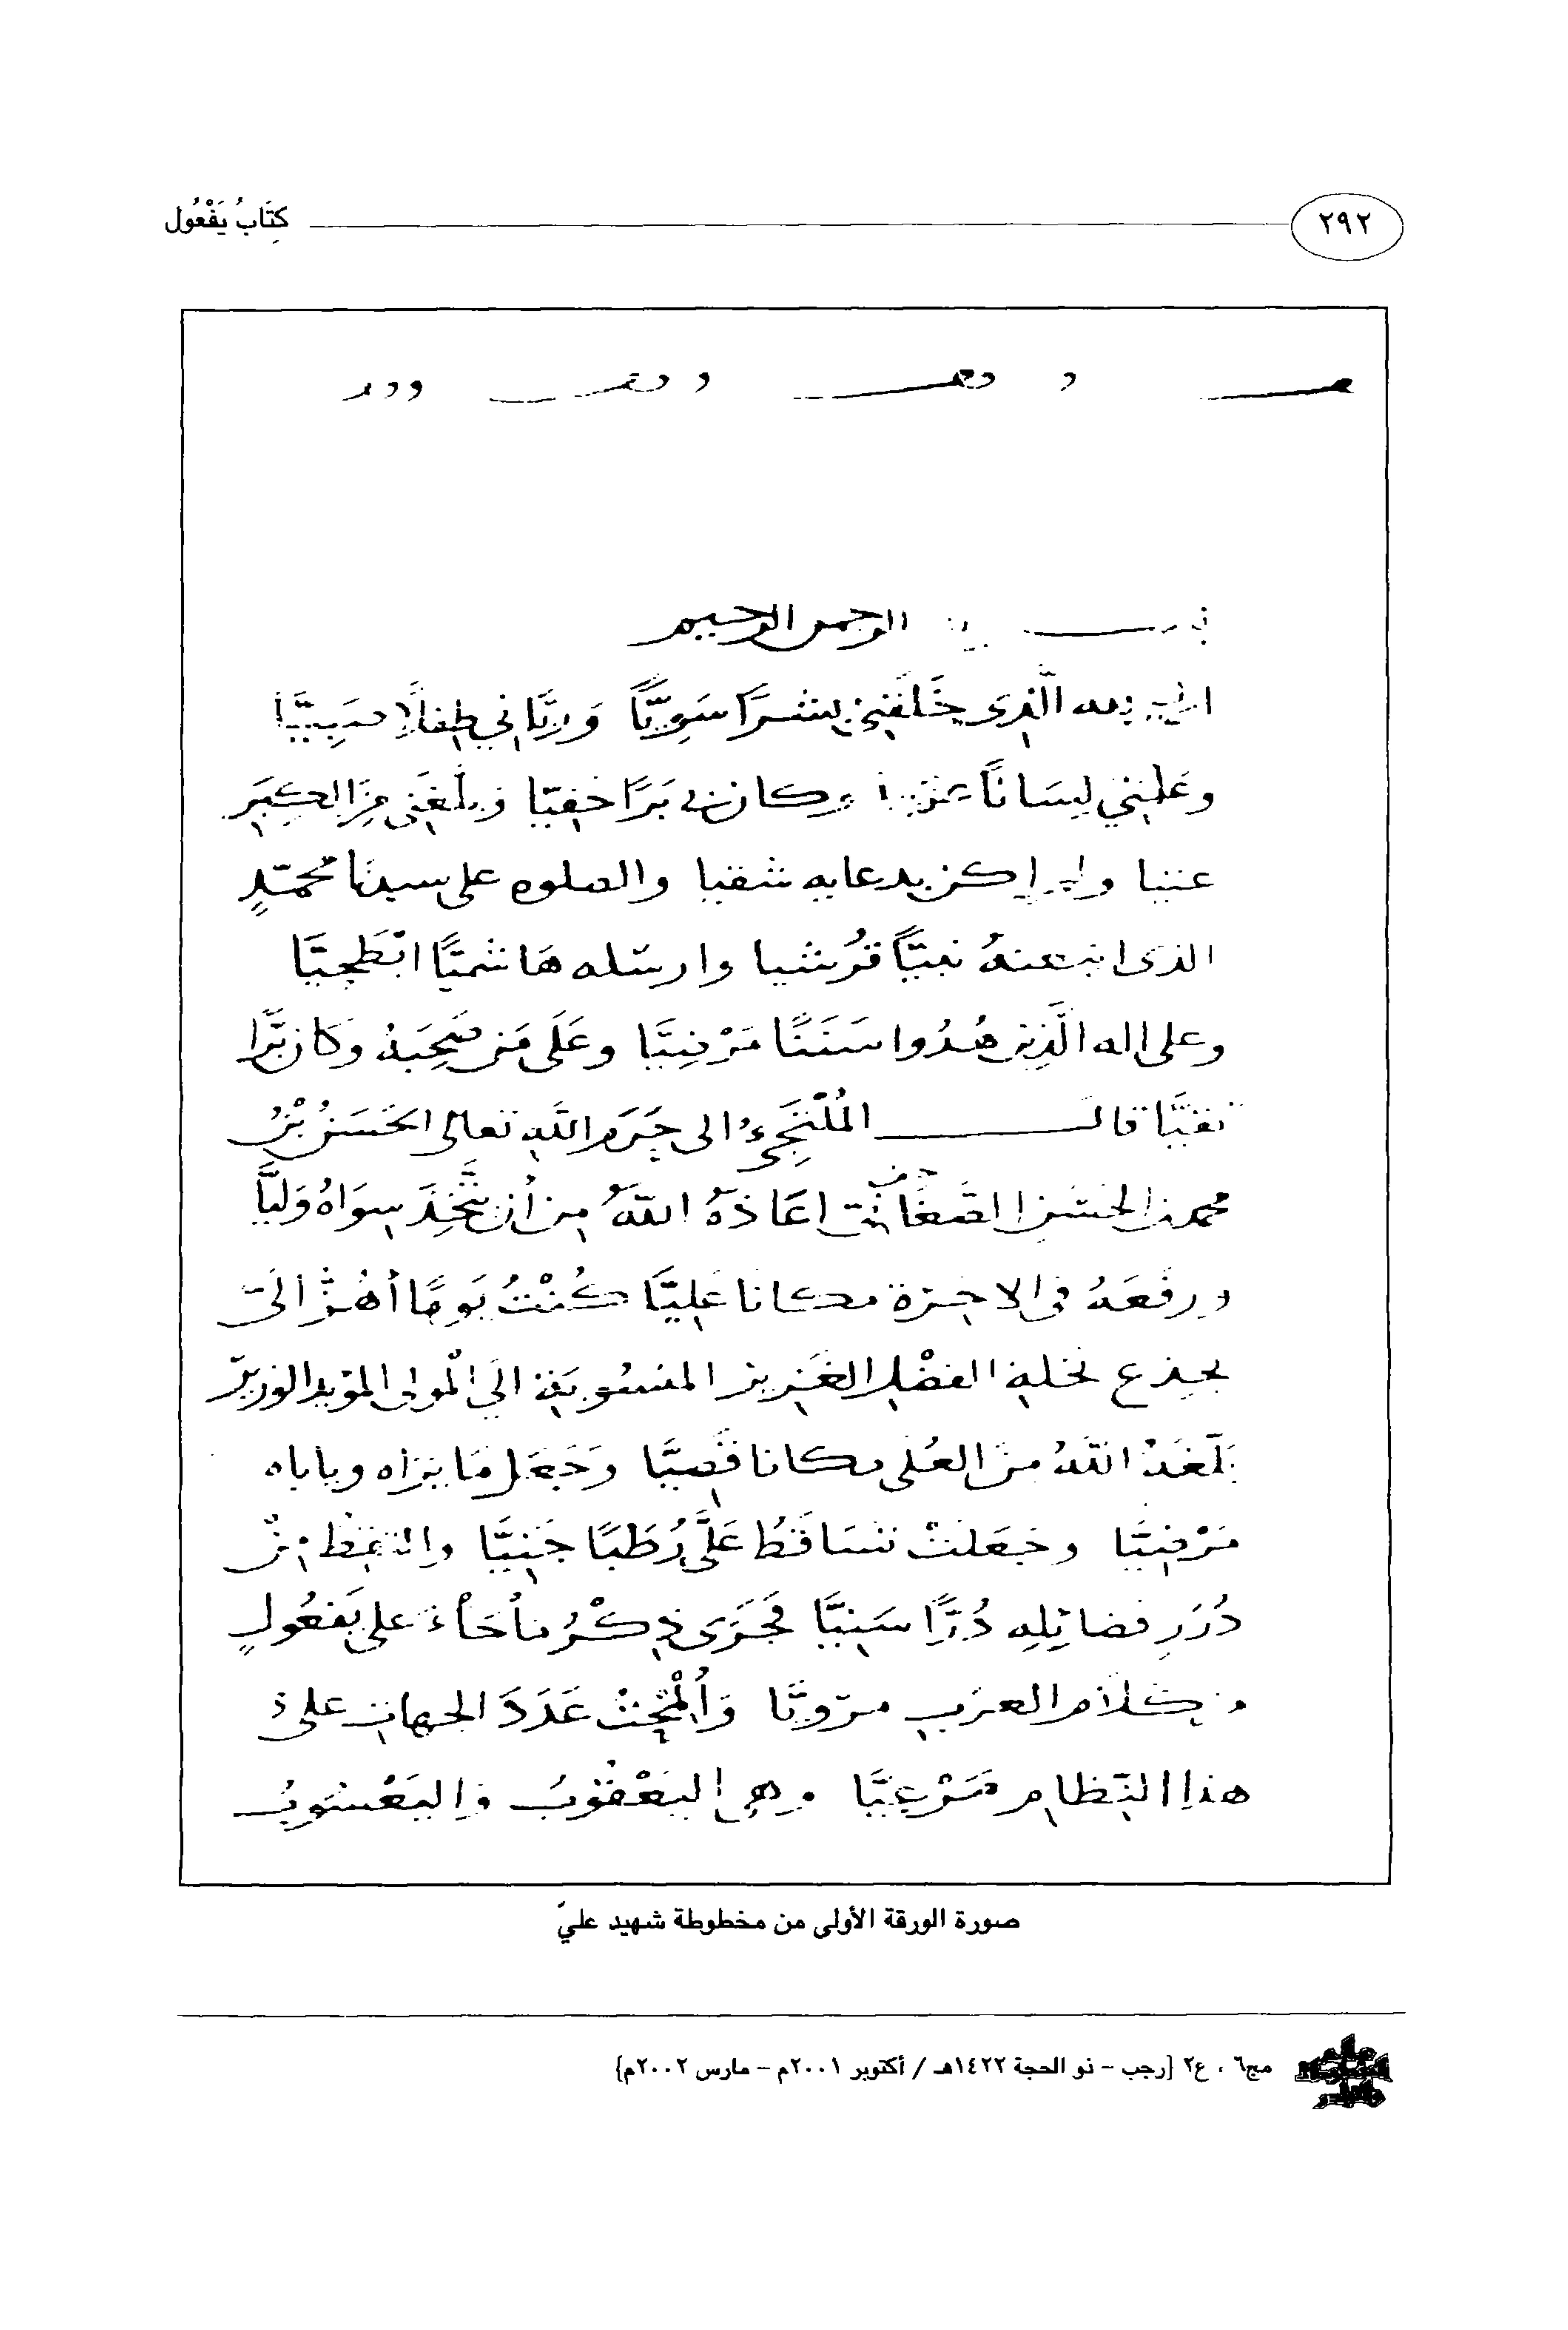 ٢٩٢
كِتَابُ يَفْعُول
الرحمن الرحيم
الذى خَلَقَنِى بَشَرًا سَوِيًّا وَرَبَّانِي طِفْلًا صَبِيًّا
وعَلَّمَنِي لِسَانًا وكان بى بَرًّا حَفِيًّا وبلَّغَنِى مِنَ الكِبَرِ
عتيا ولم اكن بدعايه شقيا والصلوه على سيدنا محمّدٍ
الذى ابتعثهُ نبيًّا قُرشيا وارسله هَاشميًّا ابْطَحِيًّا
وعلى اله الَّذِين هُدُوا سَنَنًا مَرْضِيًّا وعَلَى مَن صَحِبَهُ وكان بَرًّا
تقيًّا قال المُلْتَجِىءُ الى حَرَمِ اللَّهِ تعالى الحَسَنُ بْنُ
محمد بن الحَسَن الصَّغَانىّ اعَاذَهُ اللَّهُ مِن أَن يَتَّخِذَ سِوَاهُ وَلِيًّا
ورفَعَهُ فى الاخِرَة مكانا عَلِيًّا كُنْتُ يَومًا أَهُزُّ الَىَّ
بجذع نخلة الفضْلِ الغَزِيز المنسُوبَة الَى الْمولى المؤيد الوزيرّ
بلّغَهُ اللَّهُ مِنَ العُلَى مكانا قَصِيًّا وَجَعَلَ مَا يَرَاه وياباه
مَرْضِيًّا وجَعَلَتْ تَسَاقَطُ عَلَىَّ رُطَبًا جَنِيًّا والتقط مِنْ
دُرَرِ فضائِلِه دُرًّا سَنِيًّا فجَرَى ذِكْرُ مَا جَاءَ على يَفعُولٍ
من كَلَام العرَب مرويًّا وَأُلْمِحْتُ عَدَدَ الجهات على
هذا النِّظَام مَرْعِيًّا وهى اليَعْقُوبُ واليَعْسُوبُ
صورة الورقة الأولى من مخطوطة شهيد عليّ
مج٦ ، ع٢ [رجب - ذو الحجة ١٤٢٢هـ / أكتوبر ٢٠٠١م - مارس ٢٠٠٢م]